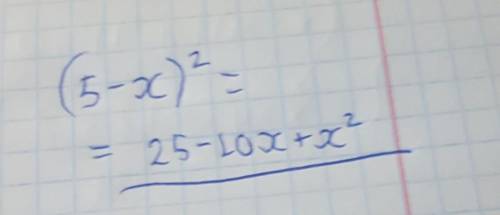 (5-x)² =
= 25-10x+x²